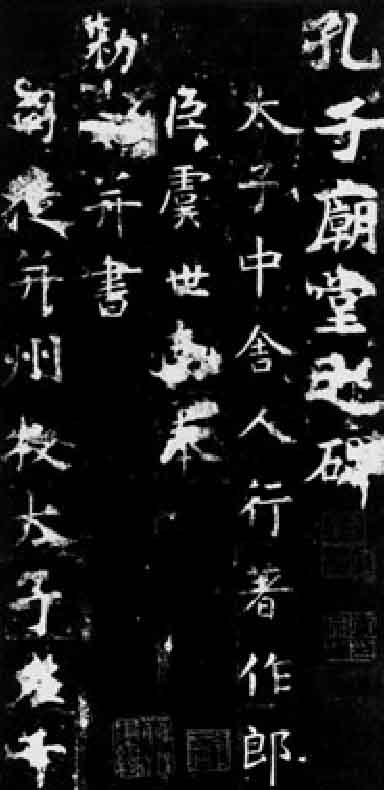 孔子廟堂之碑
太子中舍人行著作郎
臣虞世南奉
勅并書
司徒并州牧太子左千